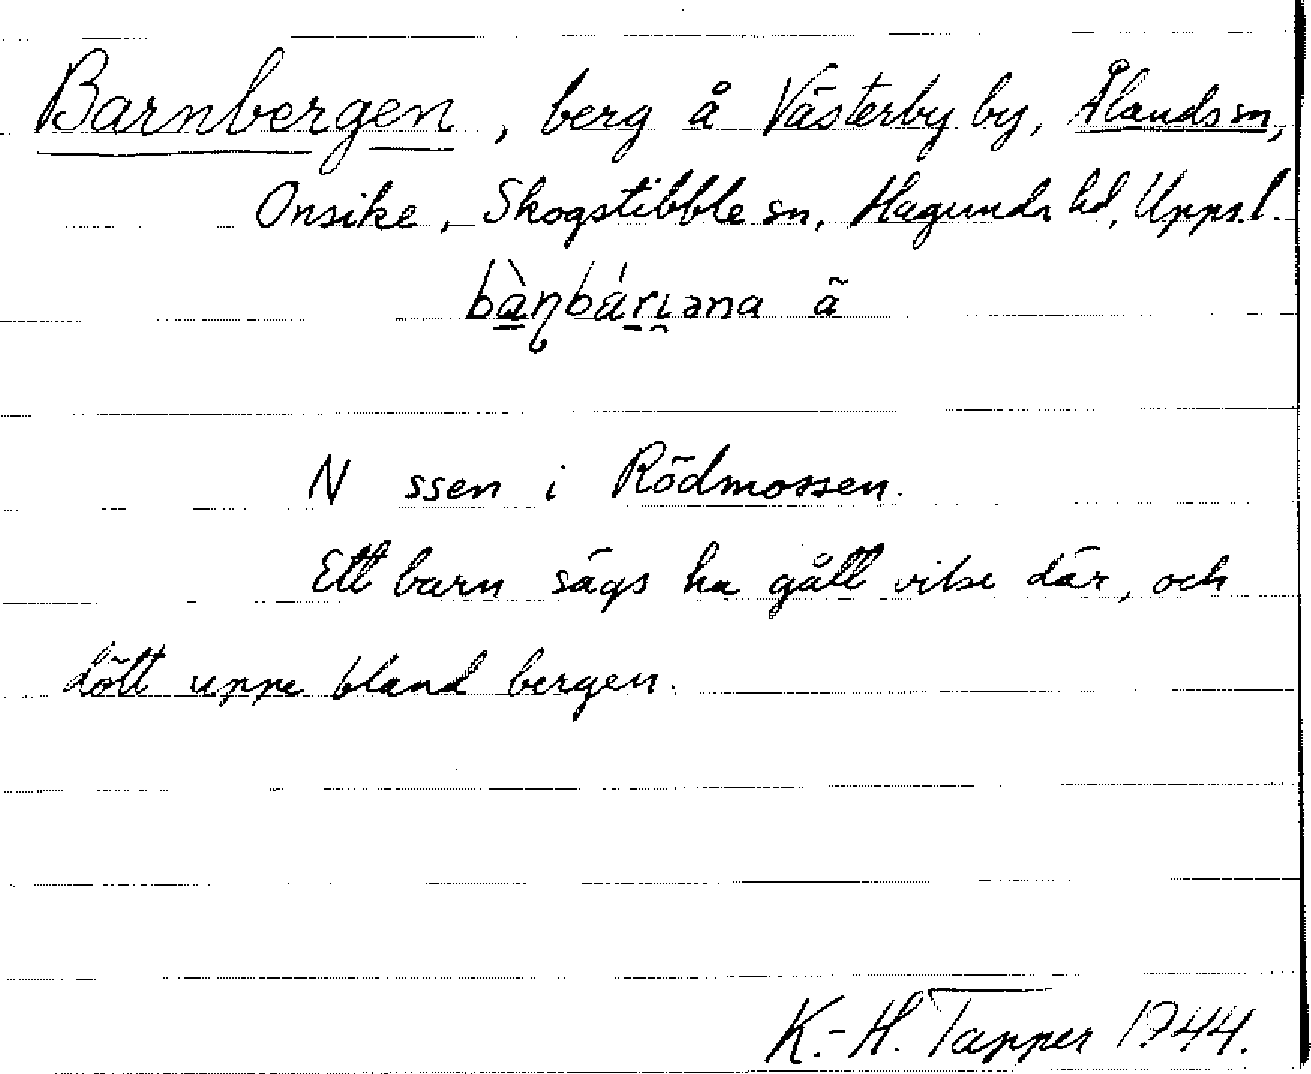 Barnbergen, berg å Västerby by, Ålands sn,
Onsike, Skogstibble sn, Hagunda hd, Upps. l.
bàn̥bári̯əna ä
N ssen i Rödmossen.
Ett barn sägs ha gått vilse där, och
dött uppe bland bergen.
K.-H. Tapper 1944.